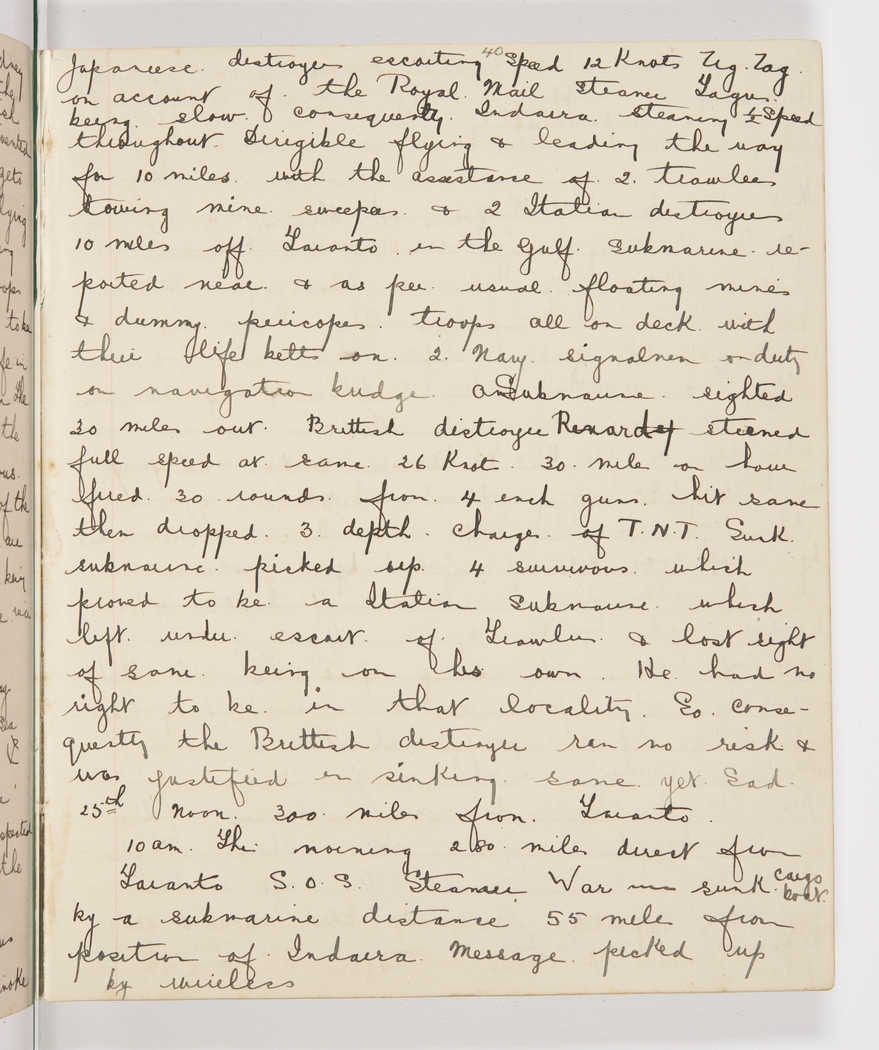 Japanese. destroyer escorting 40 Speed 12 Knots Zig. Zag.
on account of. the Royal. Mail Steamer Tagus.
being. slow. consequently. Indarra. steaming ½ Speed
throughout. Dirigible flying & leading the way
for 10 miles. with the assistance of. 2. trawlers
towing mine. sweepers. & 2 Italian destroyers
10 miles off. Taranto. in the Gulf. Submarine. re-
ported near. & as per. usual. floating mines
& dummy. pericopes. troops all on deck. with
their life belts on. 2. Navy. signalmen on duty
on navigation bridge. a Submarine. sighted
30 miles out. Brittish destroyer Renard steemed
full speed at same. 26 Knot. 30. mile an hour
fired. 30 rounds. from. 4 inch guns. hit same
then dropped. 3. depth. charges. of T.N.T. Sunk.
submarine. picked up. 4 survivors. which
proved to be. a Italian Submarine. which
left. under. escort. of. Trawler. & lost sight
of same. being on his own. He. had no
right to be. in that locality. So. conse-
quently the Brittish destroyer ran no risk &
was justified in sinking. same. yet. Sad.
25th Noon. 300. miles from. Taranto.
10 am. This morning 280. miles direct from
Taranto S.O.S. Steamer. War sunk. cargo boat.
by a submarine distance 55 mile from
position of. Indarra. Message. picked up
by wireless